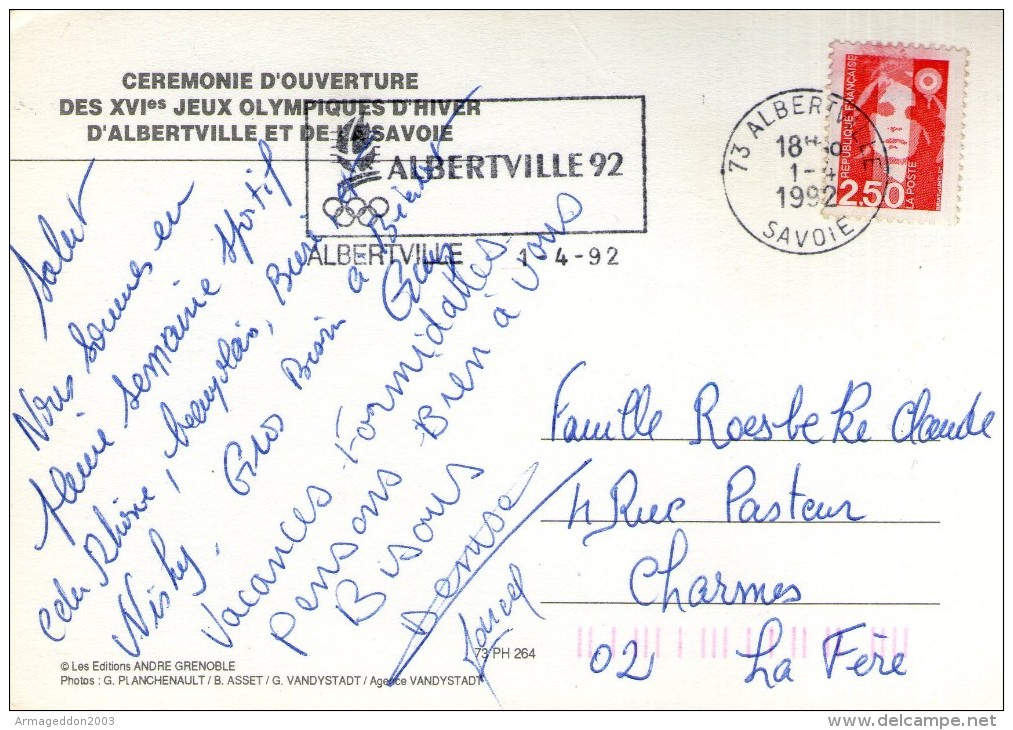 CEREMONIE D'OUVERTURE
DES XVIes JEUX OLYMPIQUES D'HIVER
D'ALBERTVILLE ET DE LA SAVOIE
ALBERTVILLE 92
ALBERTVILLE 1 4-92
73 ALBERTVILLE
18H
1-4
1992
SAVOIE
REPUBLIQUE FRANÇAISE
2.50
LA POSTE
Salut
Nous sommes en
pleine semaine sportif
Rhône, beaujolais,
Wisky. Gros
à Bientôt
Vacances Formidables
Pensons Bien à vous
Bisous
Denise
Marcel
Famille Roesbeke Claude
4 Rue Pasteur
Charmes
02 La Fère
73 PH 264
© Les Editions ANDRE GRENOBLE
Photos : G. PLANCHENAULT / B. ASSET / G. VANDYSTADT / Agence VANDYSTADT
Armageddon2003
delcampe.net